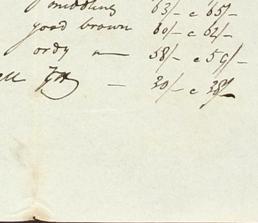 middling 63/- c 65/-
good brown 60/- c 62/-
ordy " — 58/- c 59/-
— 30/- c 38/-